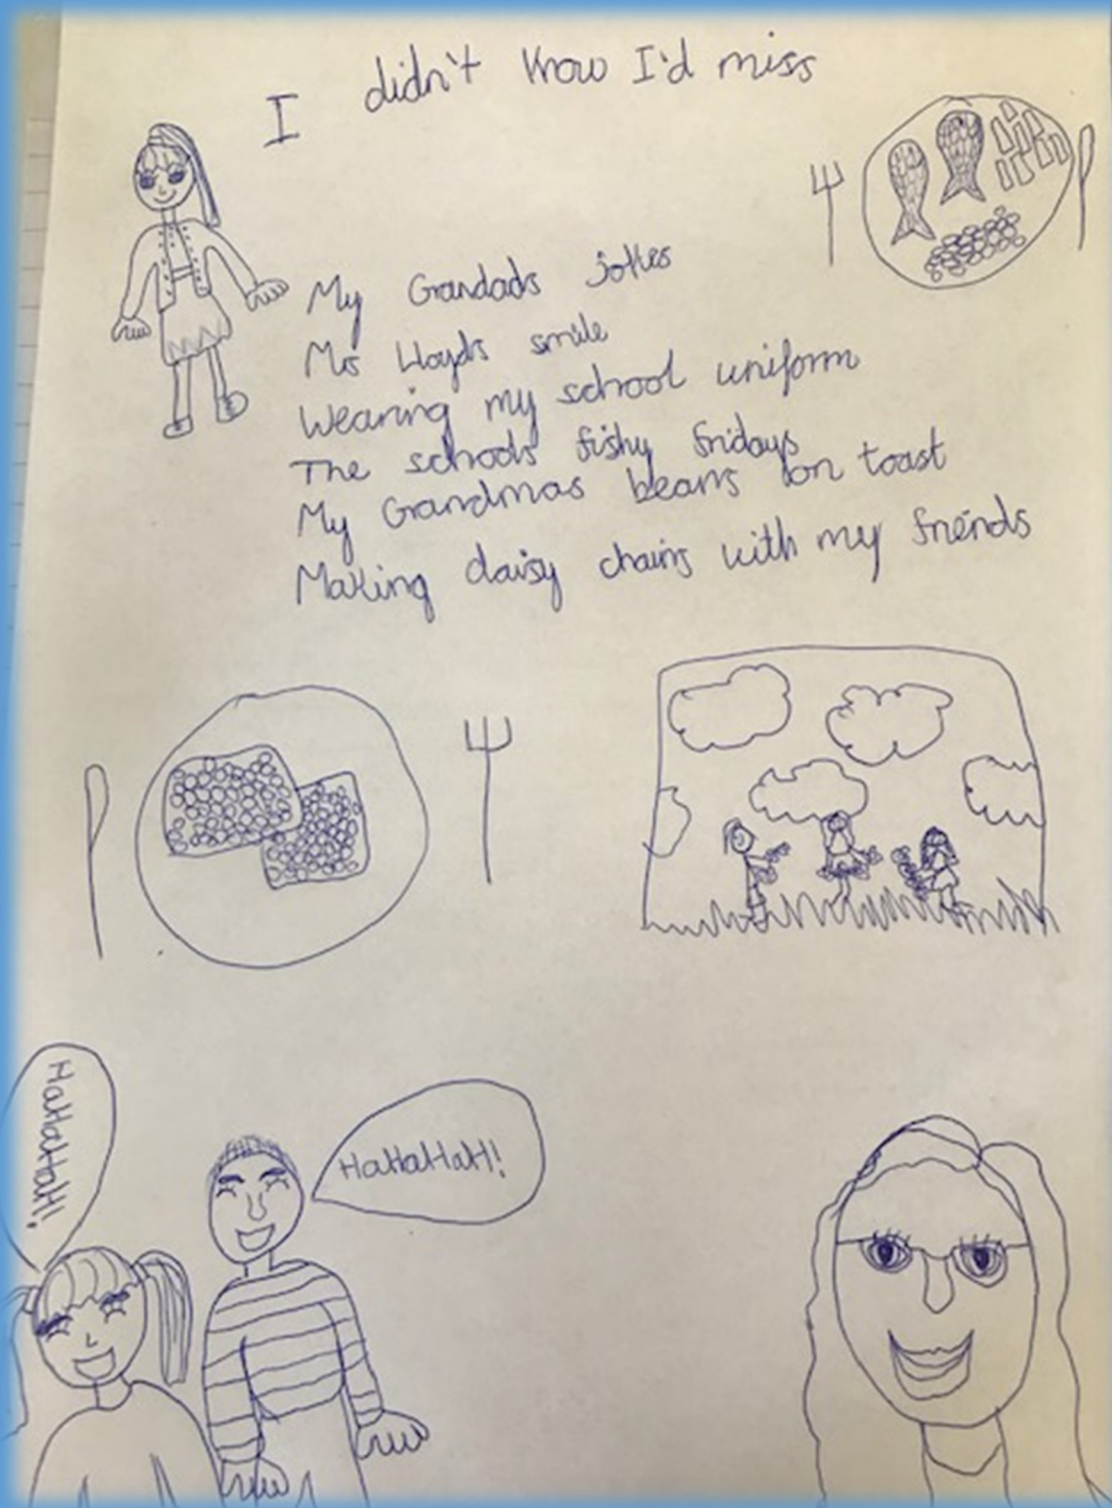 I didn't know I'd miss
My Grandads jokes
Mrs Lloyds smile
Wearing my school uniform
The schools fishy fridays
My Grandmas beans on toast
Making daisy chains with my friends
HaHaHaH!
HaHaHaH!